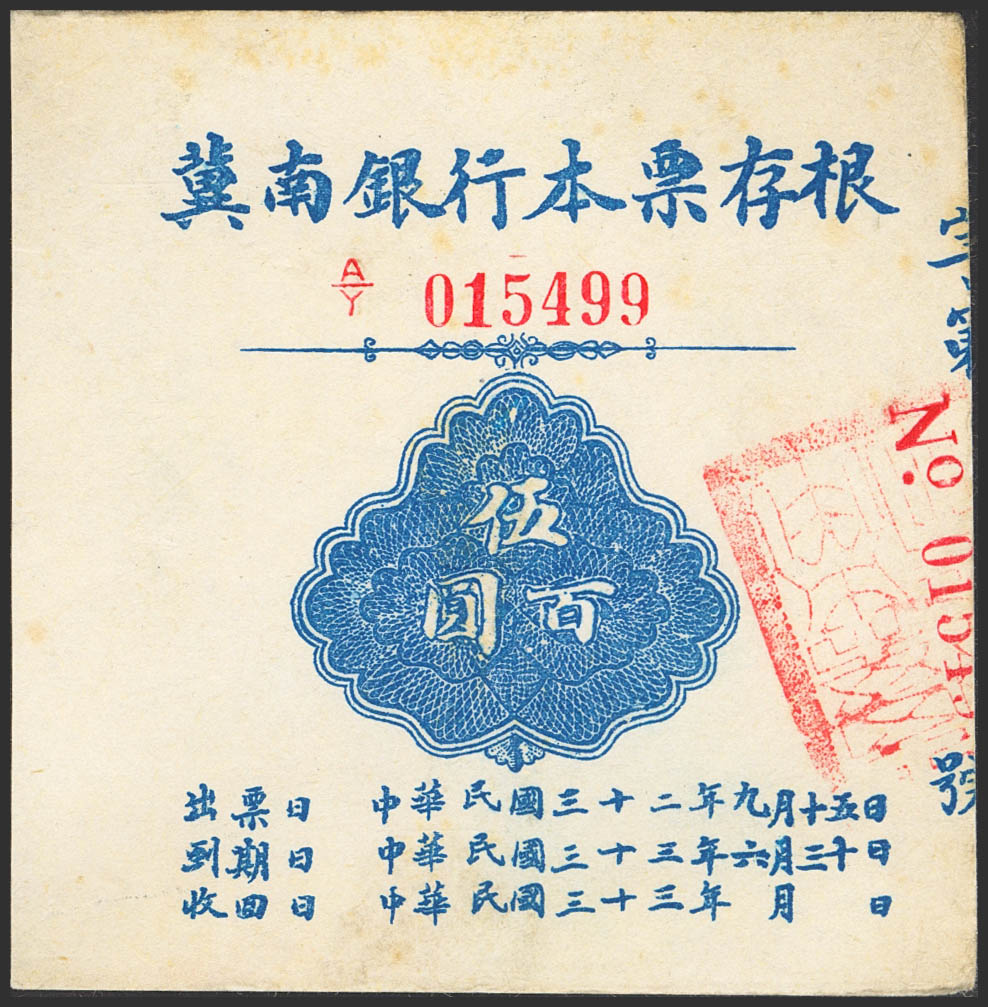 冀南銀行本票存根
A/Y 015499
伍
百
圓
出票日 中華民國三十二年九月十五日
到期日 中華民國三十三年六月三十日
收回日 中華民國三十三年 月 日
第
No
號